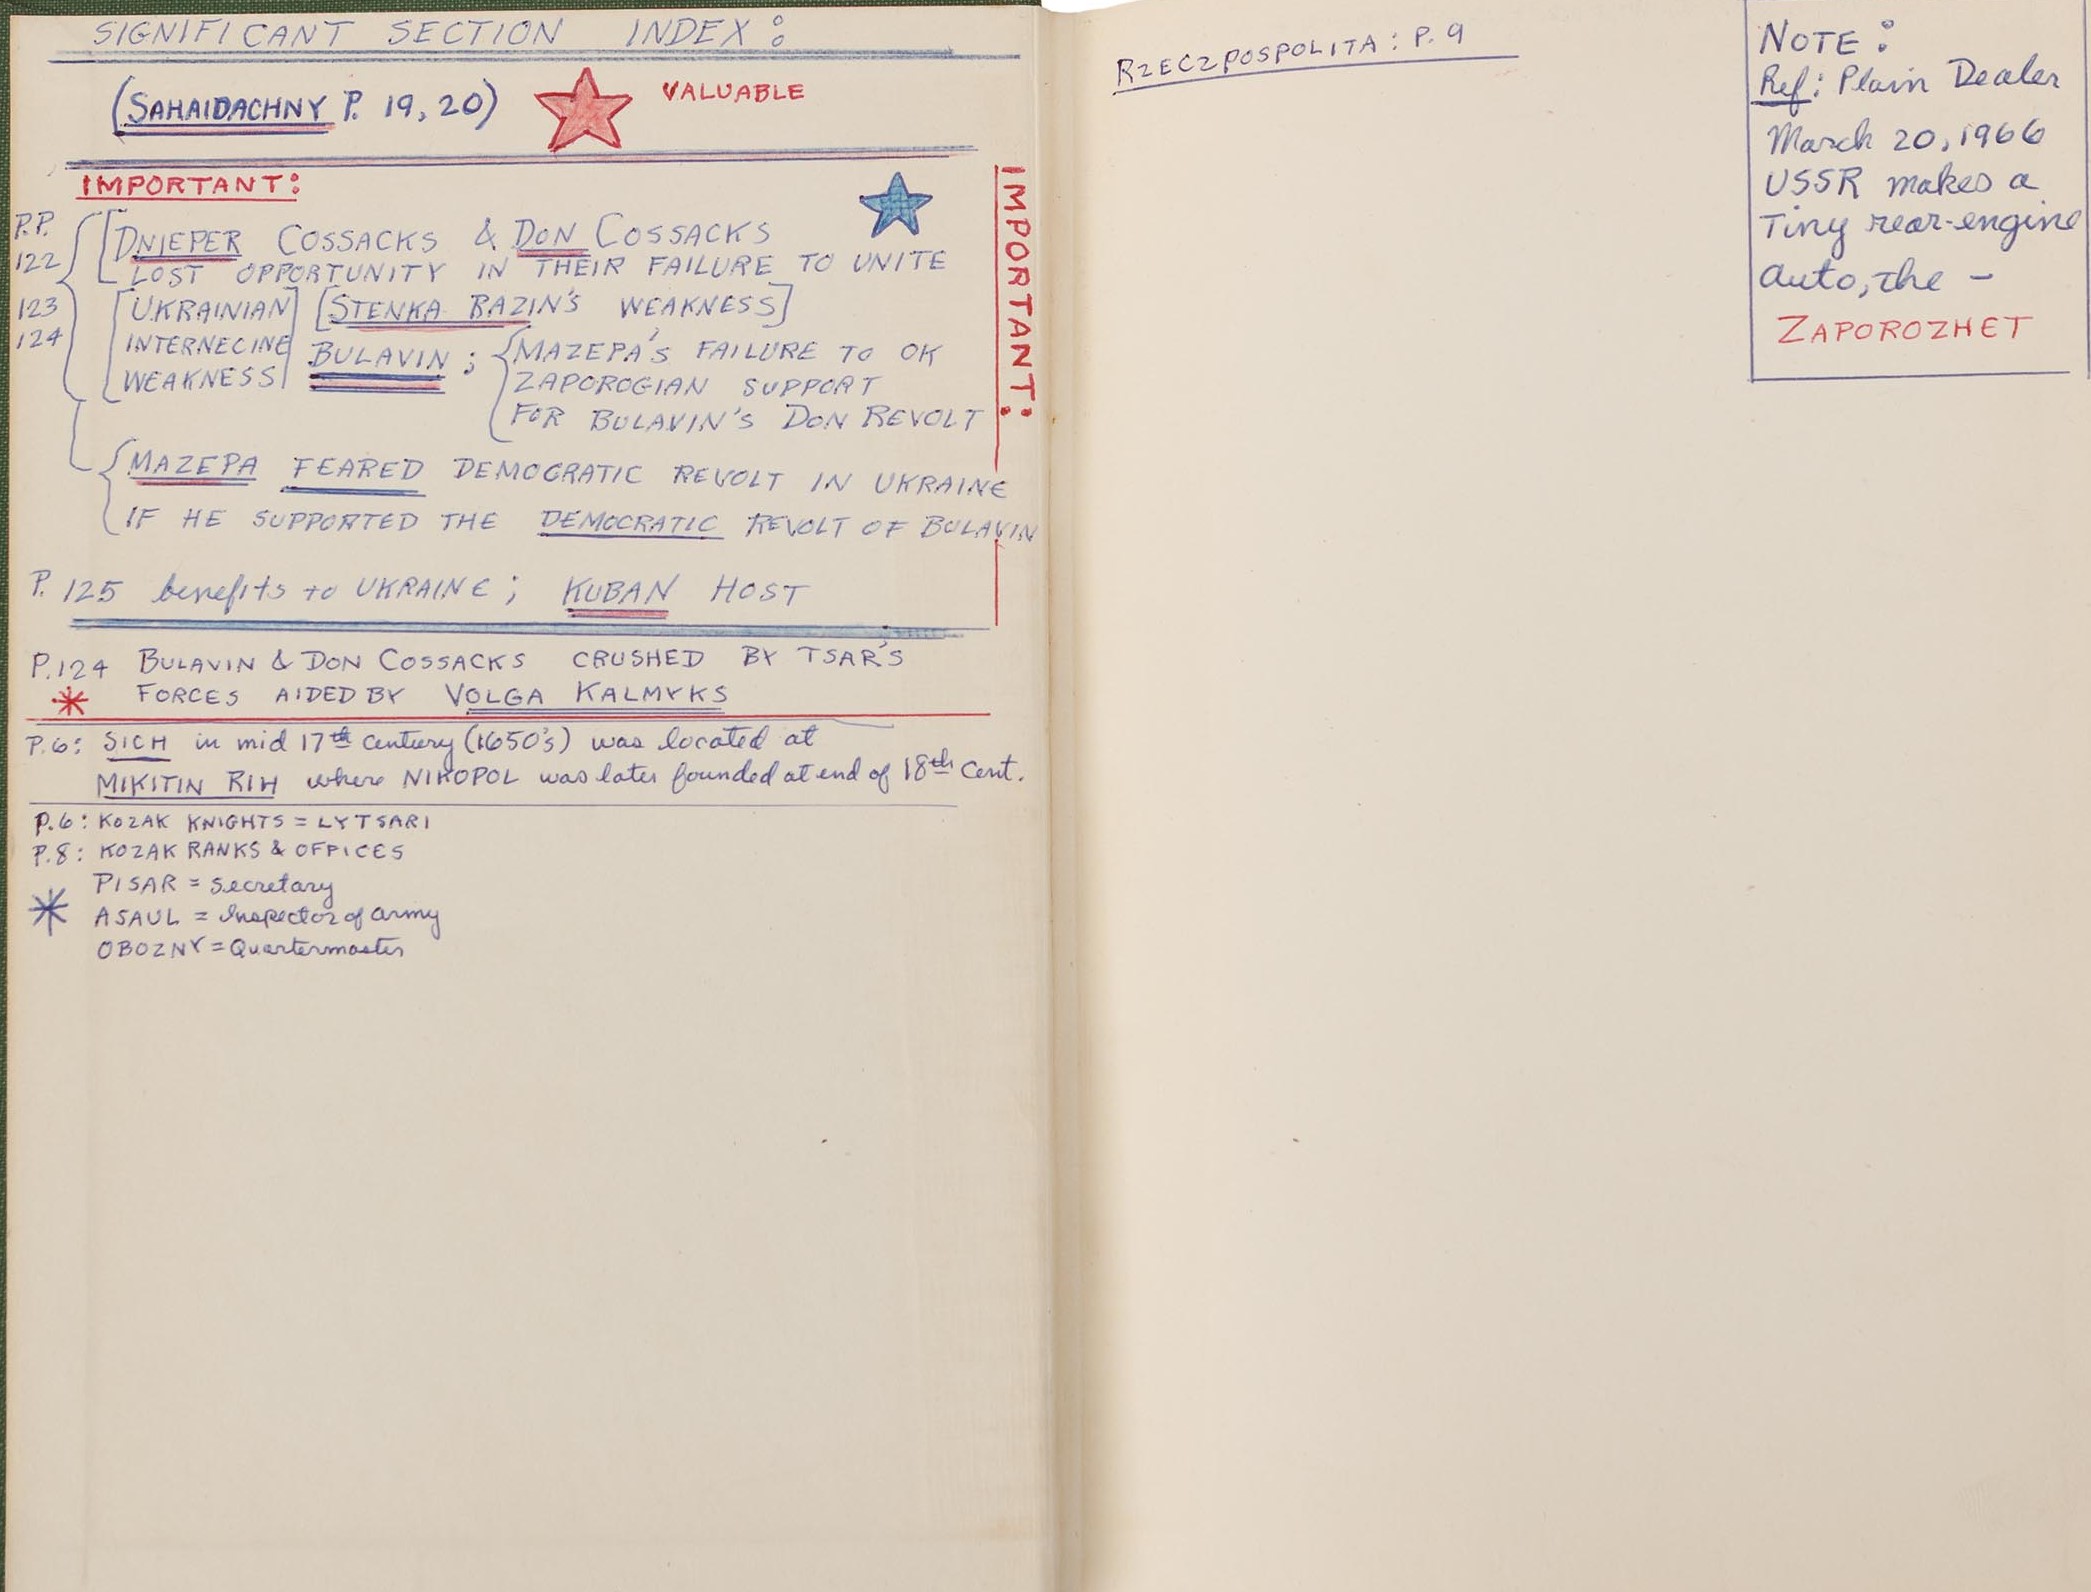 SIGNIFICANT SECTION INDEX:
(SAHAIDACHNY P. 19, 20) VALUABLE
IMPORTANT:
IMPORTANT:
P.P. 122 123 124
DNIEPER COSSACKS & DON COSSACKS
LOST OPPORTUNITY IN THEIR FAILURE TO UNITE
[UKRAINIAN INTERNECINE WEAKNESS]
[STENKA RAZIN'S WEAKNESS]
BULAVIN; {MAZEPA'S FAILURE TO OK
ZAPOROGIAN SUPPORT
FOR BULAVIN'S DON REVOLT
{MAZEPA FEARED DEMOCRATIC REVOLT IN UKRAINE
IF HE SUPPORTED THE DEMOCRATIC REVOLT OF BULAVIN
P. 125 benefits to UKRAINE; KUBAN HOST
P.124 BULAVIN & DON COSSACKS CRUSHED BY TSAR'S
* FORCES AIDED BY VOLGA KALMYKS
P.6: SICH in mid 17th century (1650's) was located at
MIKITIN RIH where NIKOPOL was later founded at end of 18th Cent.
P.6: KOZAK KNIGHTS = LYTSARI
P.8: KOZAK RANKS & OFFICES
PISAR = Secretary
* ASAUL = Inspector of army
OBOZNY = Quartermaster
RZECZPOSPOLITA: P. 9
NOTE:
Ref: Plain Dealer
March 20, 1966
USSR makes a
Tiny rear-engine
auto, the -
ZAPOROZHET